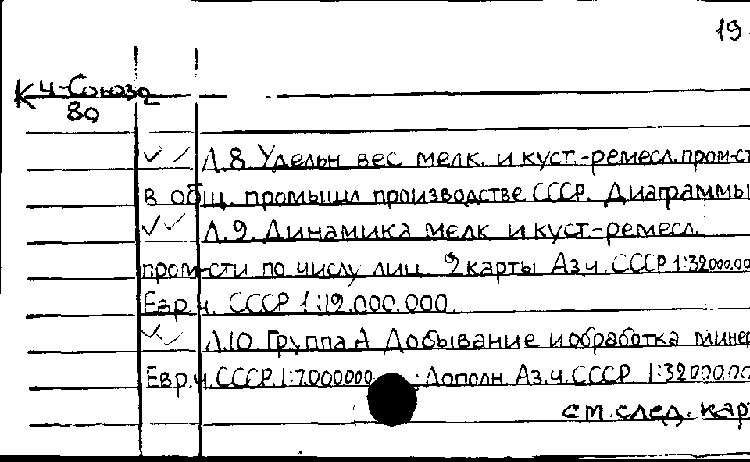 19
К Ч-Союза
80
Л.8. Удельн вес мелк. и куст.-ремесл. пром-ст
в общ. промышл производстве СССР. Диаграммы
Л.9. Динамика мелк и куст-ремесл.
пром-сти по числу лиц. 2 карты Аз.ч. СССР 1:32000.00
Евр.ч. СССР 1:12.000.000.
Л.10 Группа А Добывание и обработка минер
Евр.ч. СССР. 1:7.000000 Дополн Аз.ч. СССР 1:32000.00
см. след. кар